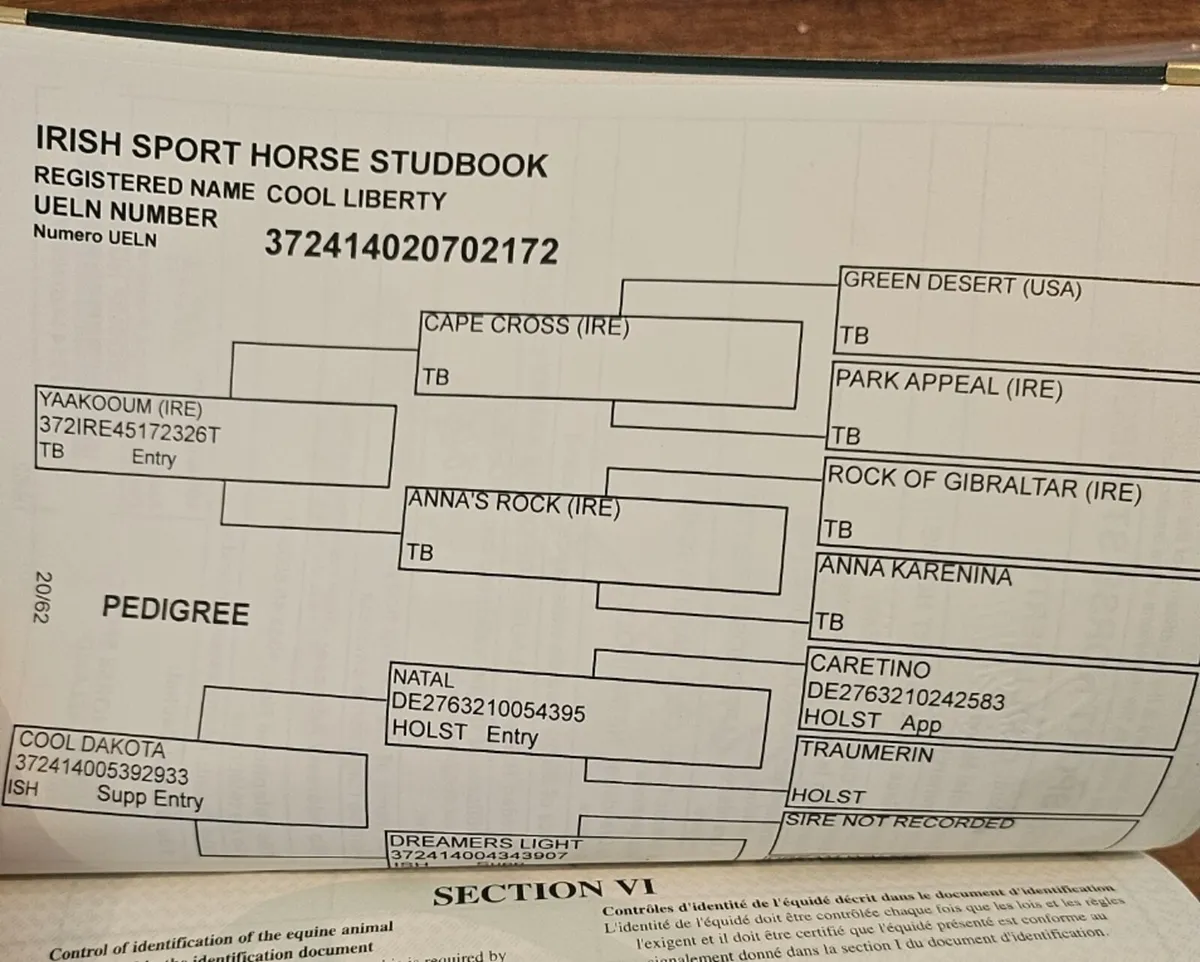 IRISH SPORT HORSE STUDBOOK
REGISTERED NAME COOL LIBERTY
UELN NUMBER
Numero UELN
372414020702172
GREEN DESERT (USA)
TB
CAPE CROSS (IRE)
TB
PARK APPEAL (IRE)
TB
YAAKOOUM (IRE)
372IRE45172326T
TB Entry
ROCK OF GIBRALTAR (IRE)
TB
ANNA'S ROCK (IRE)
TB
ANNA KARENINA
TB
20/62
PEDIGREE
CARETINO
DE2763210242583
HOLST App
NATAL
DE2763210054395
HOLST Entry
TRAUMERIN
HOLST
COOL DAKOTA
372414005392933
ISH Supp Entry
SIRE NOT RECORDED
DREAMERS LIGHT
372414004343907
SECTION VI
Control of identification of the equine animal
the identification document
required by
Contrôles d'identité de l'équidé décrit dans le document d'identification
L'identité de l'équidé doit être contrôlée chaque fois que les lois et les règles
l'exigent et il doit être certifié que l'équidé présenté est conforme au
donné dans la section I du document d'identification.